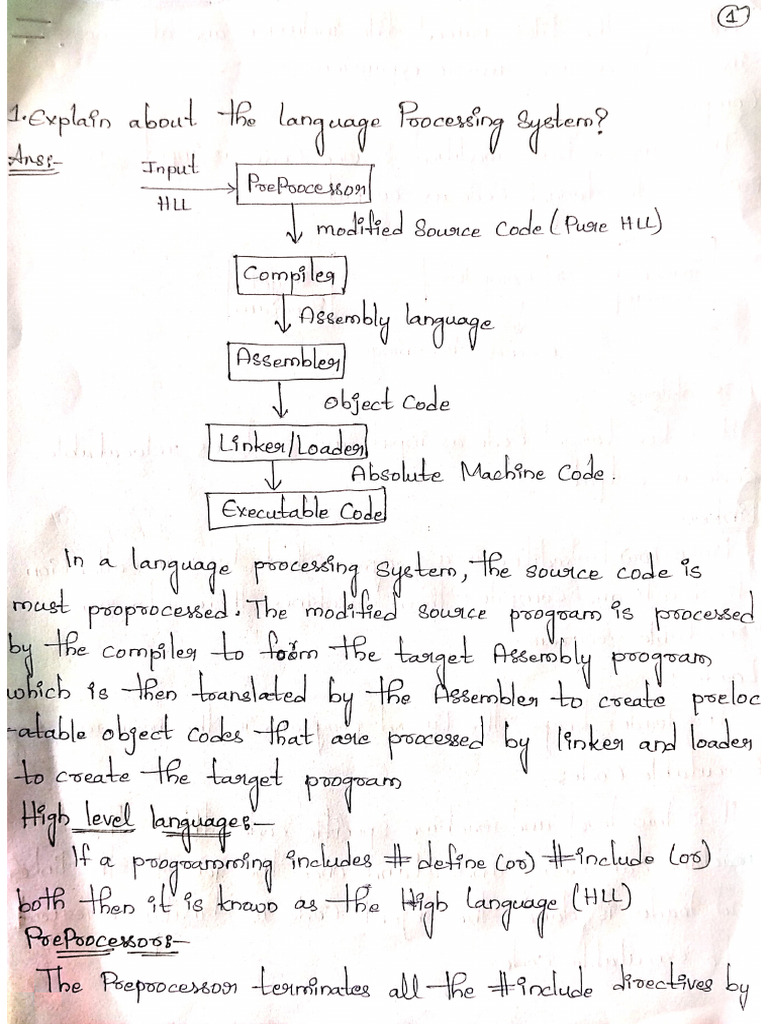 1
1. Explain about the language Processing System?
Ans:-
Input
HLL
PreProcessor
modified Source Code (Pure HLL)
Compiler
Assembly language
Assembler
Object Code
Linker/Loader
Absolute Machine Code.
Executable Code
In a language processing system, the source code is
must proprocessed. The modified source program is processed
by the compiler to form the target Assembly program
which is then translated by the Assembler to create preloc
-atable object codes that are processed by linker and loader
to create the target program
High level languages:-
If a programming includes # define (or) #include (or)
both then it is known as the High Language (HLL)
PreProcessors:-
The Preprocessor terminates all the #include directives by